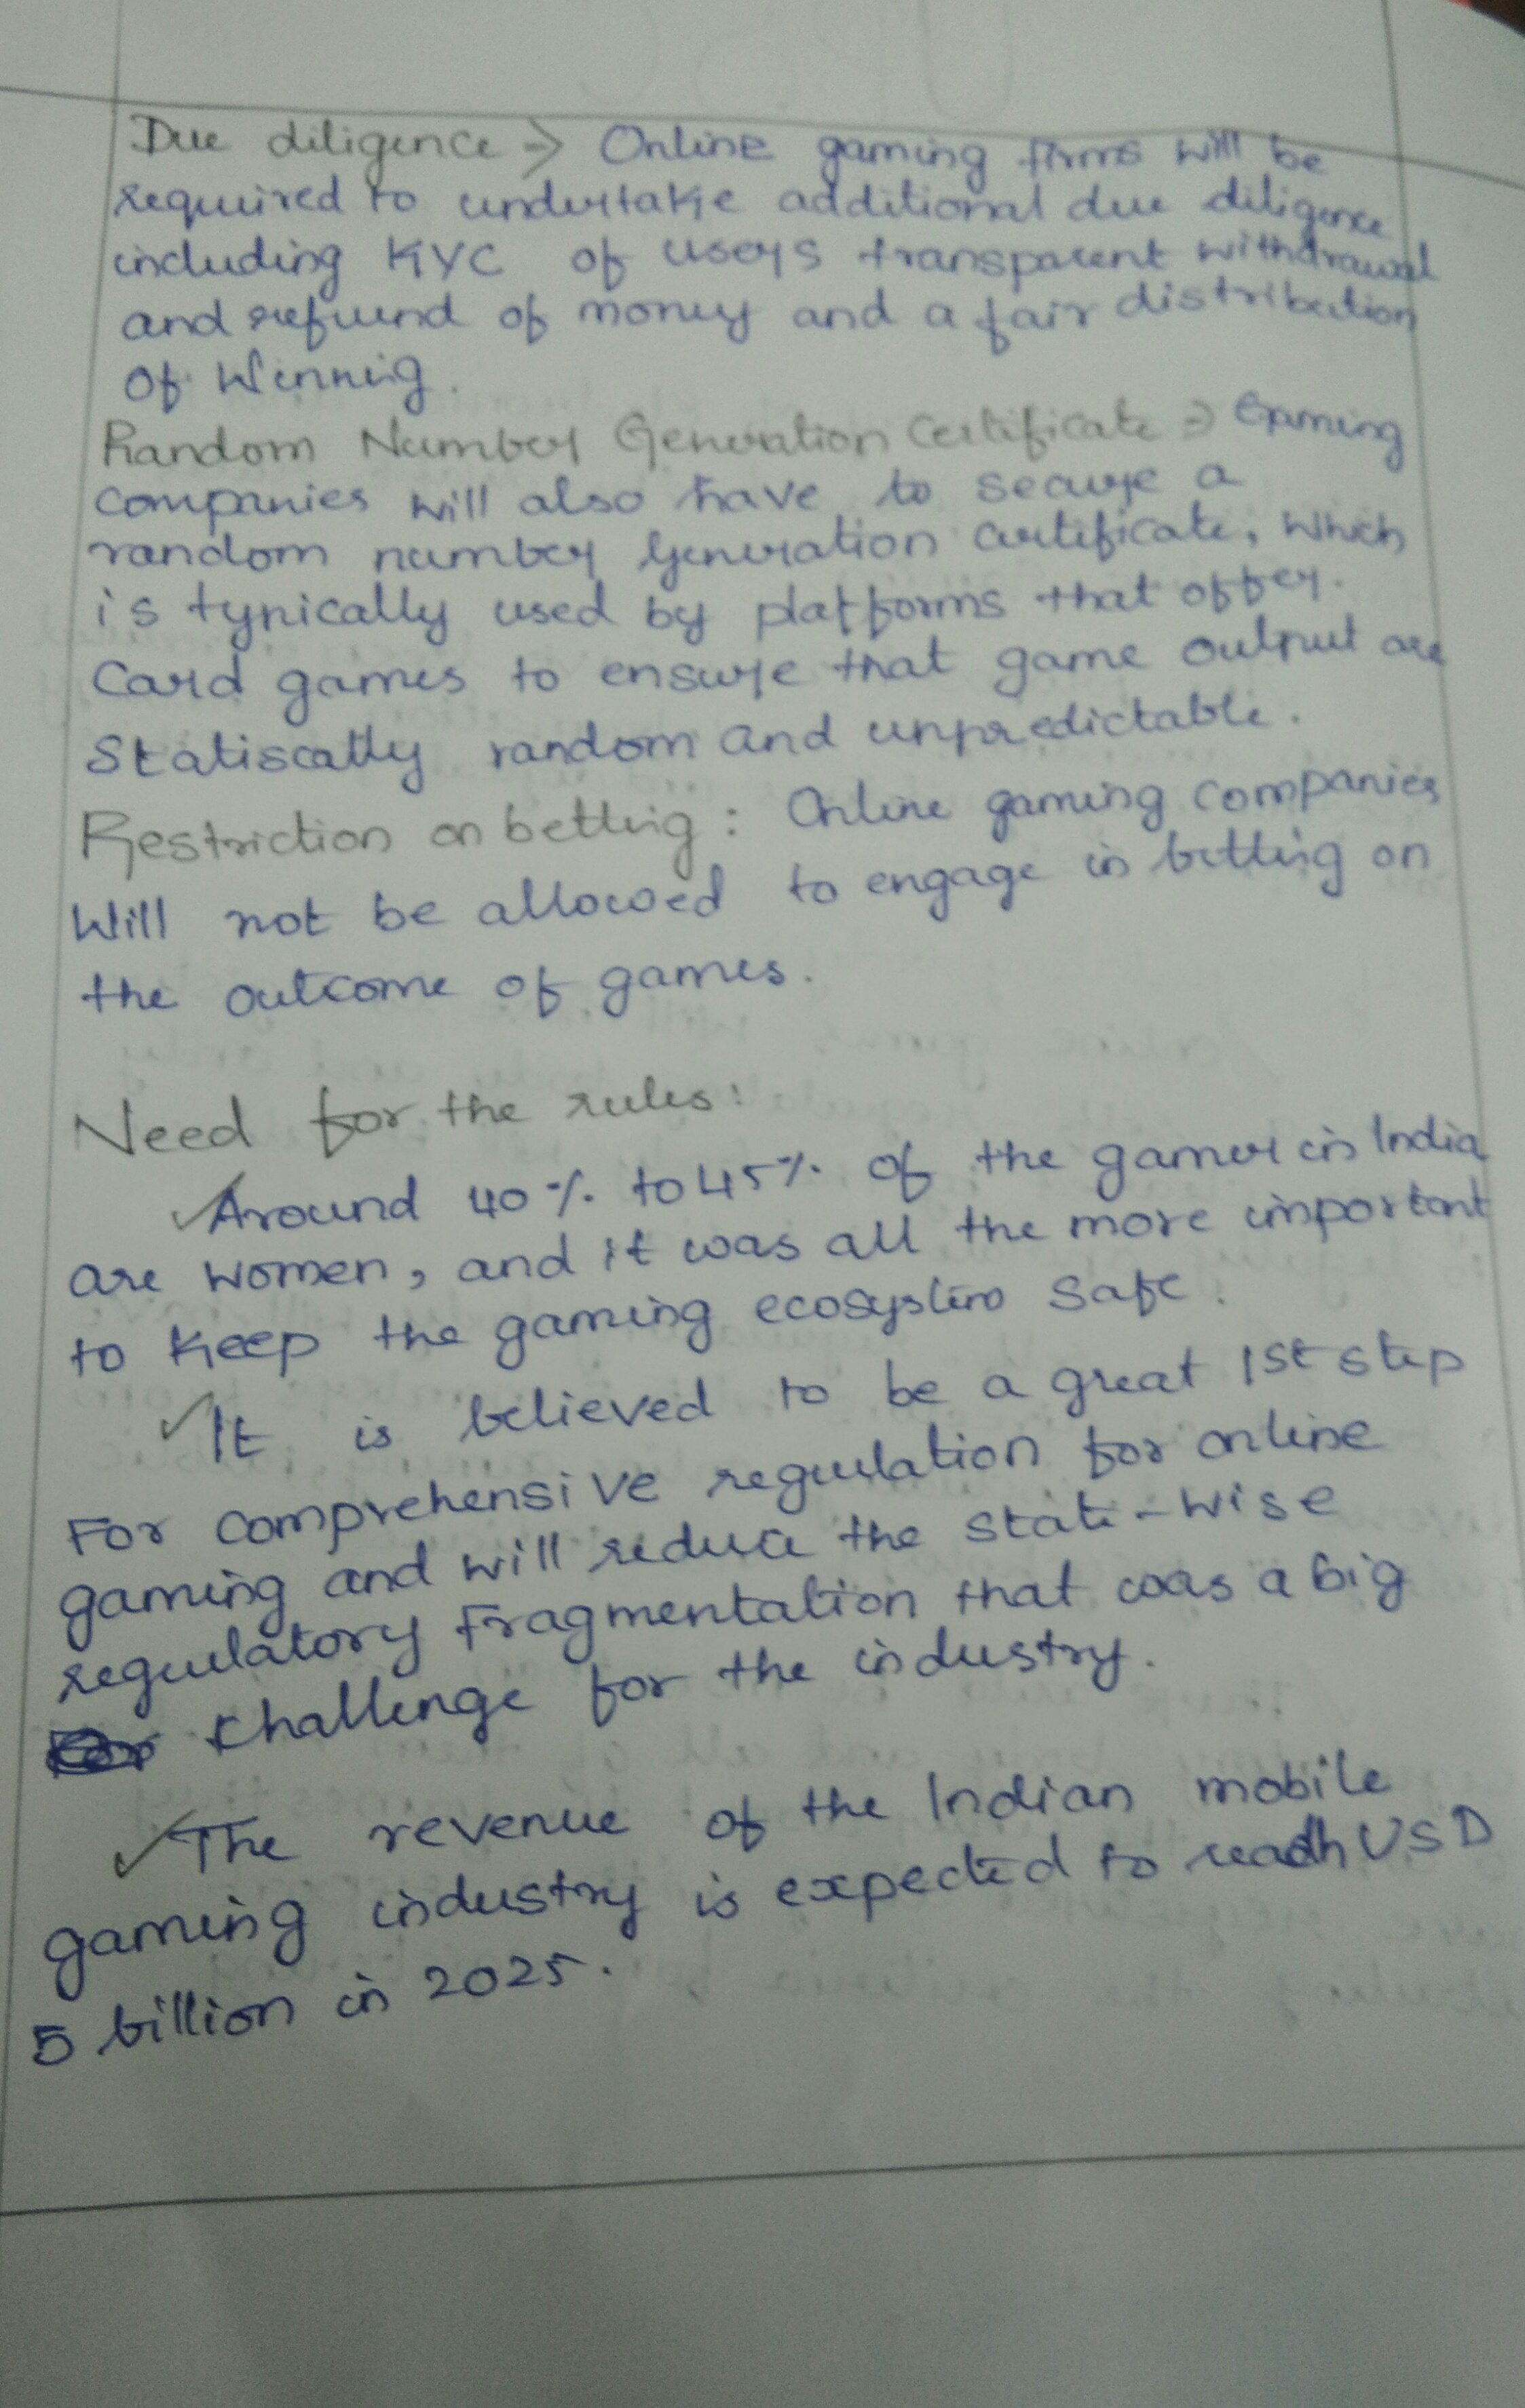 Due diligence -> Online gaming firms will be
required to undertake additional due diligence
including KYC of users transparent withdrawal
and refund of money and a fair distribution
of Winning.
Random Number Generation Certificate => Gaming
companies will also have to secure a
random number generation certificate, which
is typically used by platforms that offer.
Card games to ensure that game output are
Statiscally random and unpredictable.
Restriction on betting : Online gaming companies
Will not be allowed to engage in betting on
the outcome of games.
Need for the rules:
✓Around 40% to 45% of the gamer in India
are women, and it was all the more important
to keep the gaming ecosystem safe.
✓It is believed to be a great 1st step
For comprehensive regulation for online
gaming and will reduce the state-wise
regulatory Fragmentation that was a big
challenge for the industry.
✓The revenue of the Indian mobile
gaming industry is expected to reach USD
5 billion in 2025.